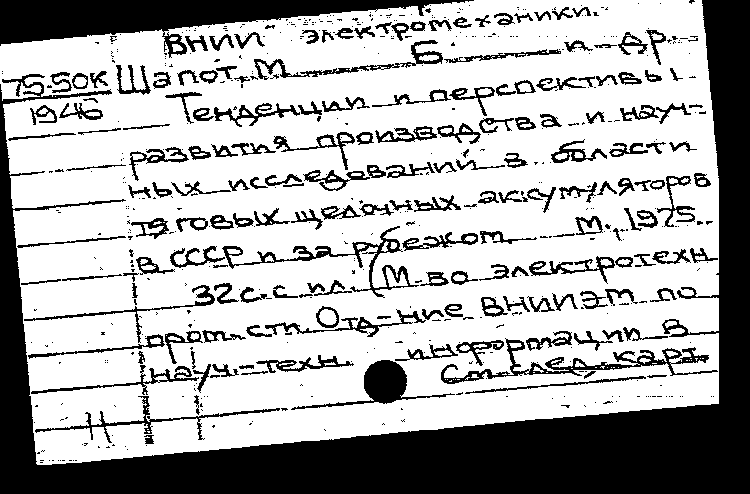 ВНИИ электромеханики.
75-50К Шапот, М Б и др.
1946 Тенденции и перспективы
развития производства и науч-
ных исследований в области
тяговых щелочных аккумуляторов
в СССР и за рубежом. М., 1975.
32 с. с ил. (М-во электротехн
пром-сти. Отд-ние ВНИИЭМ по
науч.-техн. информации в
См. след. карт.